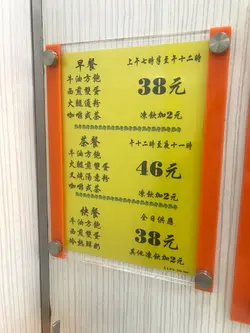 早餐 上午七時半至午十二時
牛油方飽
西煎雙蛋
火腿通粉
咖啡或茶
38元
凍飲加2元
茶餐 午十二時至夜十一時
牛油方飽
西煎雙蛋
叉燒湯意粉
咖啡或茶
46元
凍飲加2元
快餐 全日供應
牛油方飽
西煎雙蛋
冷熱鮮奶
38元
其他凍飲加2元